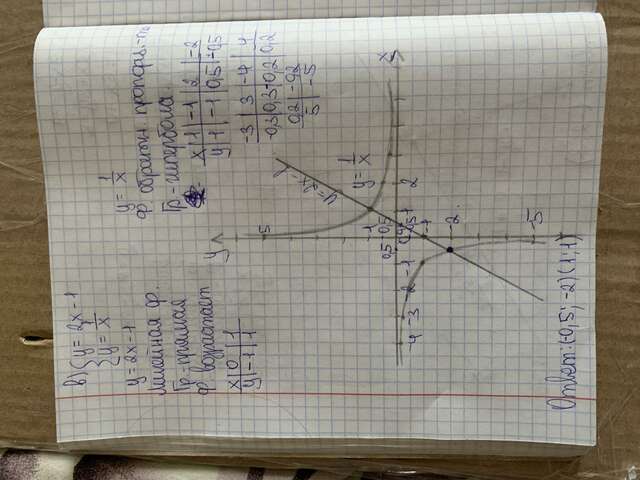 в) { y = 2x - 1
{ y = 1/x
y = 2x - 1
Линейная ф.
Гр - прямая
ф возрастает
x | 0 | 1
y | -1 | 1
y = 1/x
ф обратн пропорц-ти
Гр - гипербола
x | 1 | -1 | 2 | -2
y | 1 | -1 | 0,5 | -0,5
-3 | 3 | -4 | 4
-0,3 | 0,3 | -0,2 | 0,2
0,2 | -0,2
5 | -5
y
5
y = 2x - 1
y = 1/x
1
0,5
-4 -3 -2 -1 0,5 1 2 x
-1
-2
-5
Ответ: (-0,5; -2) (1; 1)